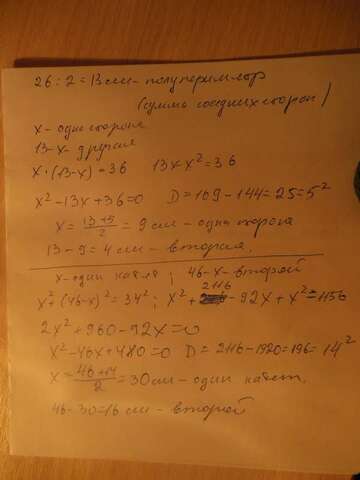 26:2=13 см - полупериметр
(сумма соседних сторон)
x - одна сторона
13-x - другая
x·(13-x)=36 13x-x²=36
x²-13x+36=0 D=169-144=25=5²
x=(13+5)/2=9 см - одна сторона
13-9=4 см - вторая.
x - один катет; 46-x - второй
x²+(46-x)²=34²; x²+2116-92x+x²=1156
2x²+960-92x=0
x²-46x+480=0 D=2116-1920=196=14²
x=(46+14)/2=30 см - один катет.
46-30=16 см - второй